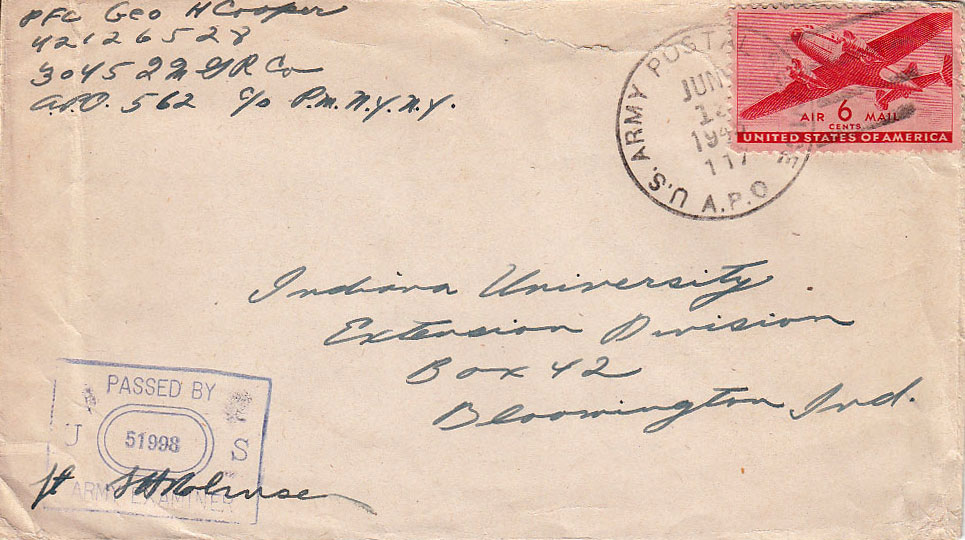 PFC Geo H Cooper
42126528
3045 QM GR Co
A.P.O. 562 c/o P.M. N.Y. N.Y.
U.S. ARMY POSTAL
A.P.O.
JUN
12
194
117
AIR 6 MAIL
CENTS
UNITED STATES OF AMERICA
Indiana University
Extension Division
Box 42
Bloomington Ind.
PASSED BY
U 51998 S
ARMY EXAMINER